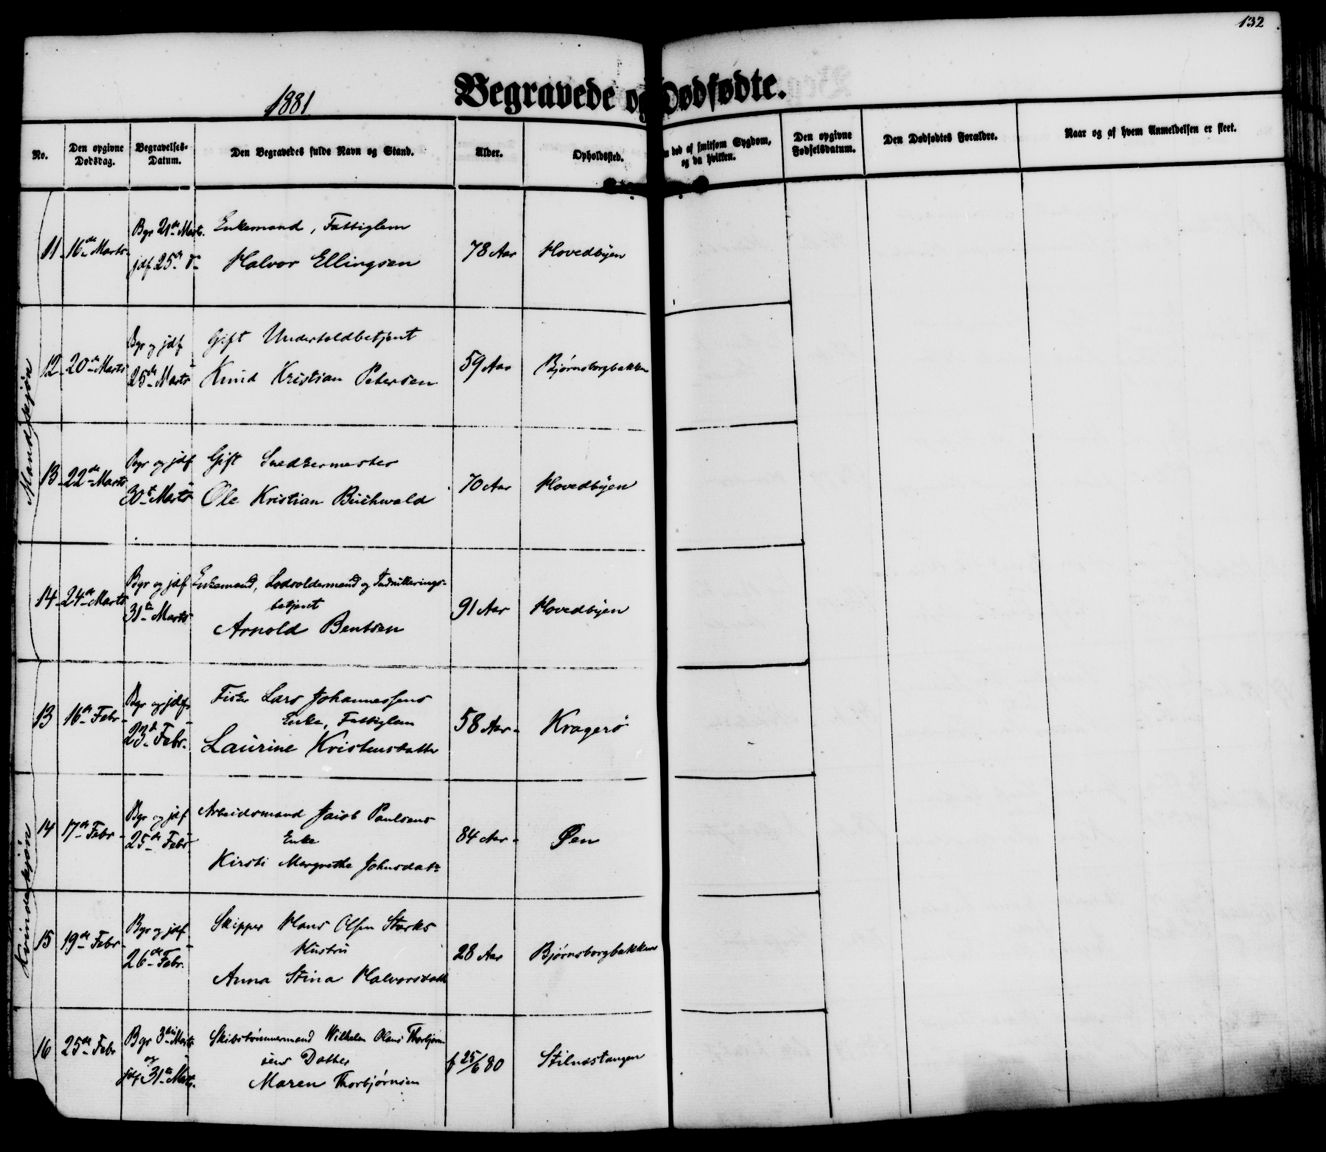 132
1881
Begravede og Dødfødte.
No.
Den opgivne Dødsdag.
Begravelses-Datum.
Den Begravedes fulde Navn og Stand.
Alder.
Opholdssted.
død af smitsom Sygdom, og da hvilken.
Den opgivne Fødselsdatum.
Den Dødfødtes Forældre.
Naar og af hvem Anmeldelsen er skeet.
Mandkjøn
11 16de Marts Bgr 21de Marts Enkemand, Fattiglem
jdf 25de Halvor Ellingsen 78 Aar Hovedbyen
12 20de Marts Bgr og jdf Gift Undertoldbetjent
25de Marts Knud Kristian Petersen 59 Aar Bjørnsborgbakken
13 22de Marts Bgr og jdf Gift Snedkermester
30te Marts Ole Kristian Buchwald 70 Aar Hovedbyen
14 24de Marts Bgr og jdf Enkemand, Lodsoldermand og Indrulleringsbetjent
31te Marts Arnold Bentsen 91 Aar Hovedbyen
Kvindekjøn
13 16de Febr Bgr og jdf Fisker Lars Johannessens
Enke, Fattiglem
23de Febr. Laurine Kristensdatter 58 Aar Kragerø
14 17de Febr Bgr og jdf Arbeidsmand Jacob Paulsens
25de Febr Enke
Kirsti Margrethe Johnsdatr 84 Aar Øen
15 19de Febr Bgr og jdf Skipper Hans Olsen Starks
26de Febr. Hustru
Anna Stina Halvorsdatt 28 Aar Bjørnsborgbakken
16 25de Febr Bgr 3die Marts Skibstømmermand Wilhelm Olaus Thorbjørn
og sens Datter
jdf 31te Mts. Maren Thorbjørnsen f 25/6 80 Stilnestangen